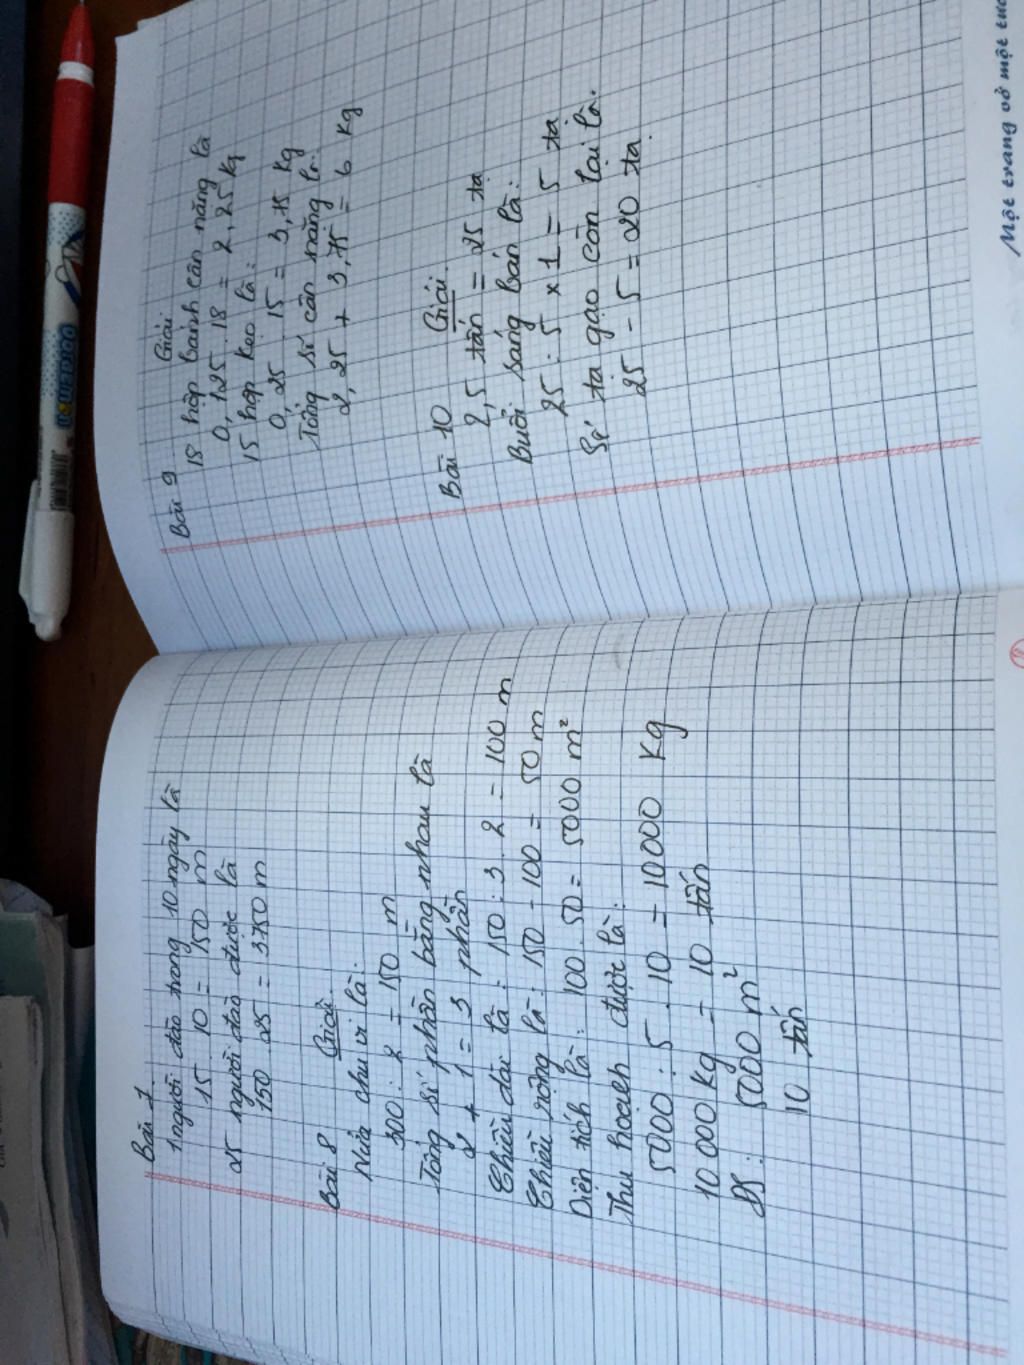 Bài 7
1 người đào trong 10 ngày là
15 . 10 = 150 m
25 người đào được là
150 . 25 = 3750 m
Bài 8 Giải.
Nửa chu vi là:
300 : 2 = 150 m
Tổng số phần bằng nhau là
2 + 1 = 3 phần
Chiều dài là : 150 : 3 . 2 = 100 m
Chiều rộng là : 150 - 100 = 50 m
Diện tích là : 100 . 50 = 5000 m²
Thu hoạch được là :
5000 : 5 . 10 = 10000 kg
10 000 kg = 10 tấn
ĐS : 5000 m²
10 tấn
Bài 9 Giải
18 hộp bánh cân nặng là
0,125 . 18 = 2,25 kg
15 hộp kẹo là :
0,25 . 15 = 3,75 kg
Tổng số cân nặng là:
2,25 + 3,75 = 6 kg
Bài 10 Giải
2,5 tấn = 25 tạ
Buổi sáng bán là :
25 : 5 x 1 = 5 tạ
Số tạ gạo còn lại là.
25 - 5 = 20 tạ
Một trang vở một tươ